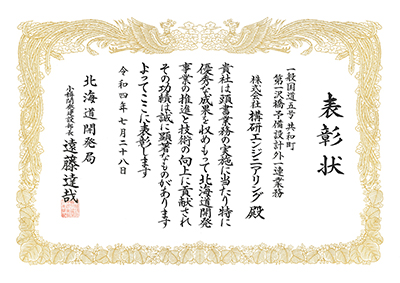 表彰状
一般国道五号 共和町
第二沢橋予備設計外一連業務
株式会社 構研エンジニアリング 殿
貴社は頭書業務の実施に当たり特に
優秀な成果を収めもって北海道開発
事業の推進と技術の向上に貢献され
その功績は誠に顕著なものがあります
よってここに表彰します
令和四年七月二十八日
北海道開発局
小樽開発建設部長 遠藤達哉